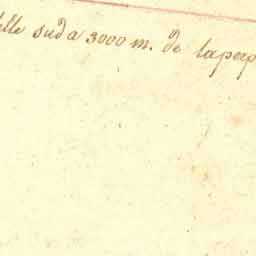 elle sud a 3000 m. de laperp